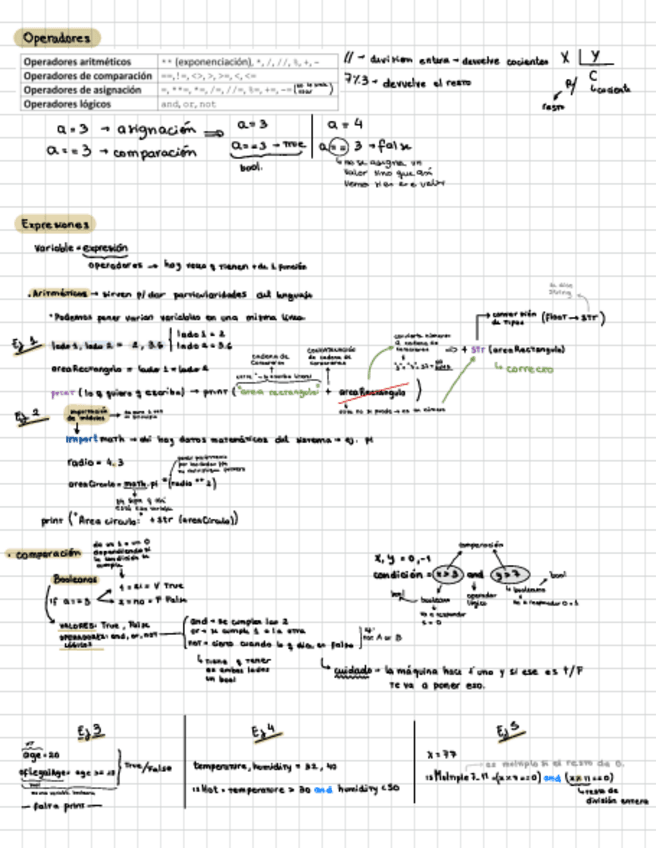 Operadores
Operadores aritméticos ** (exponenciación), *, /, //, %, +, -
Operadores de comparación ==, !=, <>, >, >=, <, <=
Operadores de asignación =, **=, *=, /=, //=, %=, +=, -=
Operadores lógicos and, or, not
// → division entera → devuelve cocientes
7%3 → devuelve el resto
X Y
R C
resto
cociente
a = 3 → asignación ⇒ a = 3
a == 3 → comparación a == 3 → True
bool.
a = 4
a == 3 → false
no se asigna un
valor sino que así
vemos si es ese valor
Expresiones
Variable = expresión
operadores → hay veces q tienen + de 1 función
• Aritméticos → sirven p/ dar particularidades al lenguaje
* Podemos poner varias variables en una misma línea.
Ej 1
lado 1, lado 2 = 2, 3.6
lado 1 = 2
lado 2 = 3.6
areaRectangulo = lado 1 * lado 2
cadena de
caracteres
concatenación
de cadena de
caracteres
convierte números
a cadena de
caracteres
print (lo q quiero q escriba) → print ("area rectangulo" + areaRectangulo )
⇒ + str (areaRectangulo)
↳ correcto
conversión
de tipos (float → str)
se dice
string
Ej 2
importación
de módulos
import math → ahí hay datos matemáticos del sistema → ej. pi
radio = 4.3
areaCirculo = math.pi * (radio ** 2)
print ("Area circulo: " + str (areaCirculo))
• comparación
da un 1 o un 0
dependiendo si
la condición se
cumple
Booleanos
if a == 3
1 = si = V True
0 = no = F False
VALORES: True, False
OPERADORES: and, or, not
LÓGICOS
and → se cumplen las 2
or → se cumple 1 o la otra
not → cierto cuando lo q dia. es falso
not A or B
↳ tiene q tener
en ambos lados
un bool
↳ cuidado → la máquina hace 1 uno y si ese es T/F
te va a poner eso.
X, y = 0, -1
comparación
condición = x > 3 and y > 7
bool
booleano
operador
lógico
booleano
bool
Ej 3
age = 20
ofLegalAge = age >= 18
True/False
— falta print —
Ej 4
temperature, humidity = 32, 40
isHot = temperature > 30 and humidity < 50
Ej 5
x = 77
es múltiplo si el resto da 0.
isMultiple 7.11 = (x % 7 == 0) and (x % 11 == 0)
↳ resto de
división entera